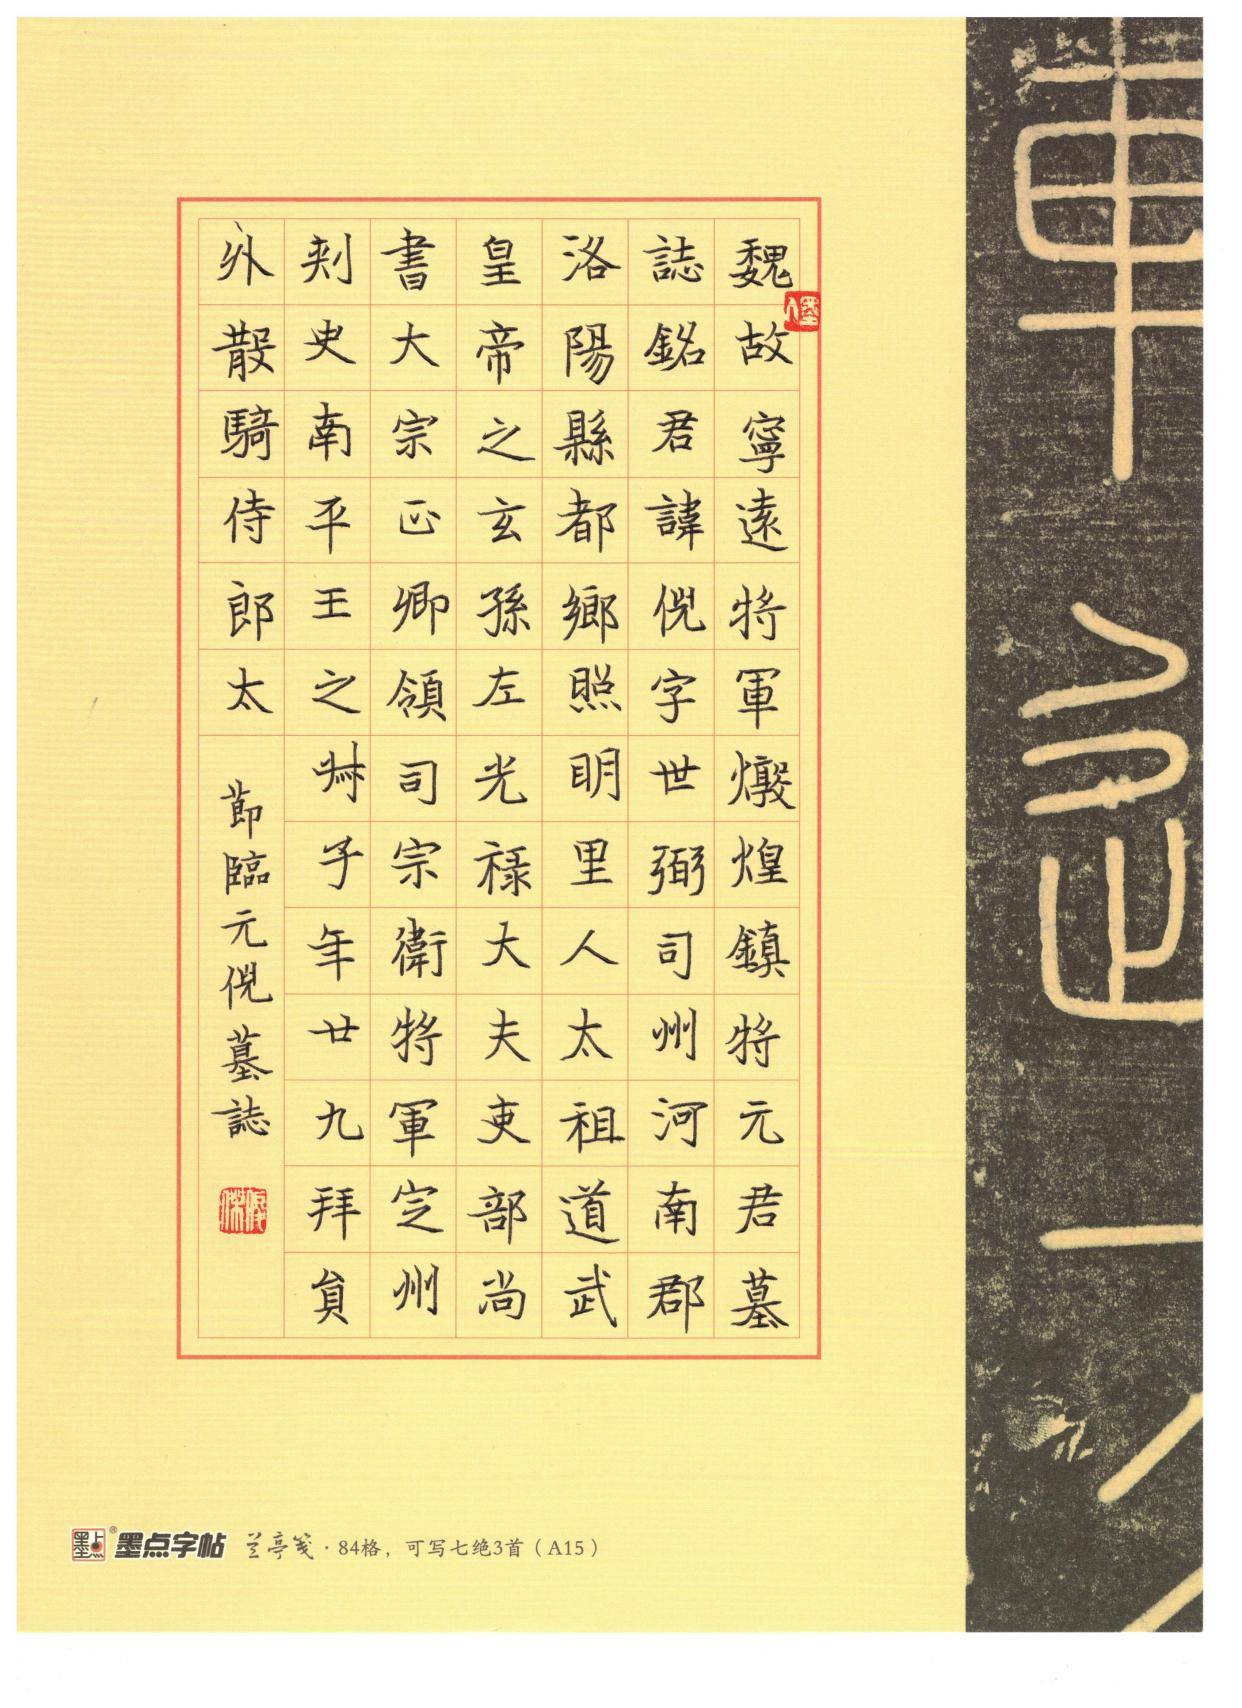 魏故寧遠將軍燉煌鎮將元君墓
誌銘君諱倪字世弼司州河南郡
洛陽縣都鄉照明里人太祖道武
皇帝之玄孫左光祿大夫吏部尚
書大宗正卿領司宗衛將軍定州
刺史南平王之叔子年廿九拜員
外散騎侍郎太
節臨元倪墓誌
墨点字帖 兰亭笺·84格，可写七绝3首（A15）